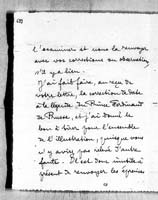 l'examiner et nous le renvoyer
avec vos corrections ou observations
s'il y a lieu.
J'ai fait faire, au reçu de
votre lettre, la correction de date
à la légende du Prince Ferdinand
de Prusse, et j'ai donné le
bon à tirer pour l'ensemble
de l'illustration, puisque vous
n'y aviez pas relevé d'autre
faute. Il est donc inutile à
présent de renvoyer les épreuves